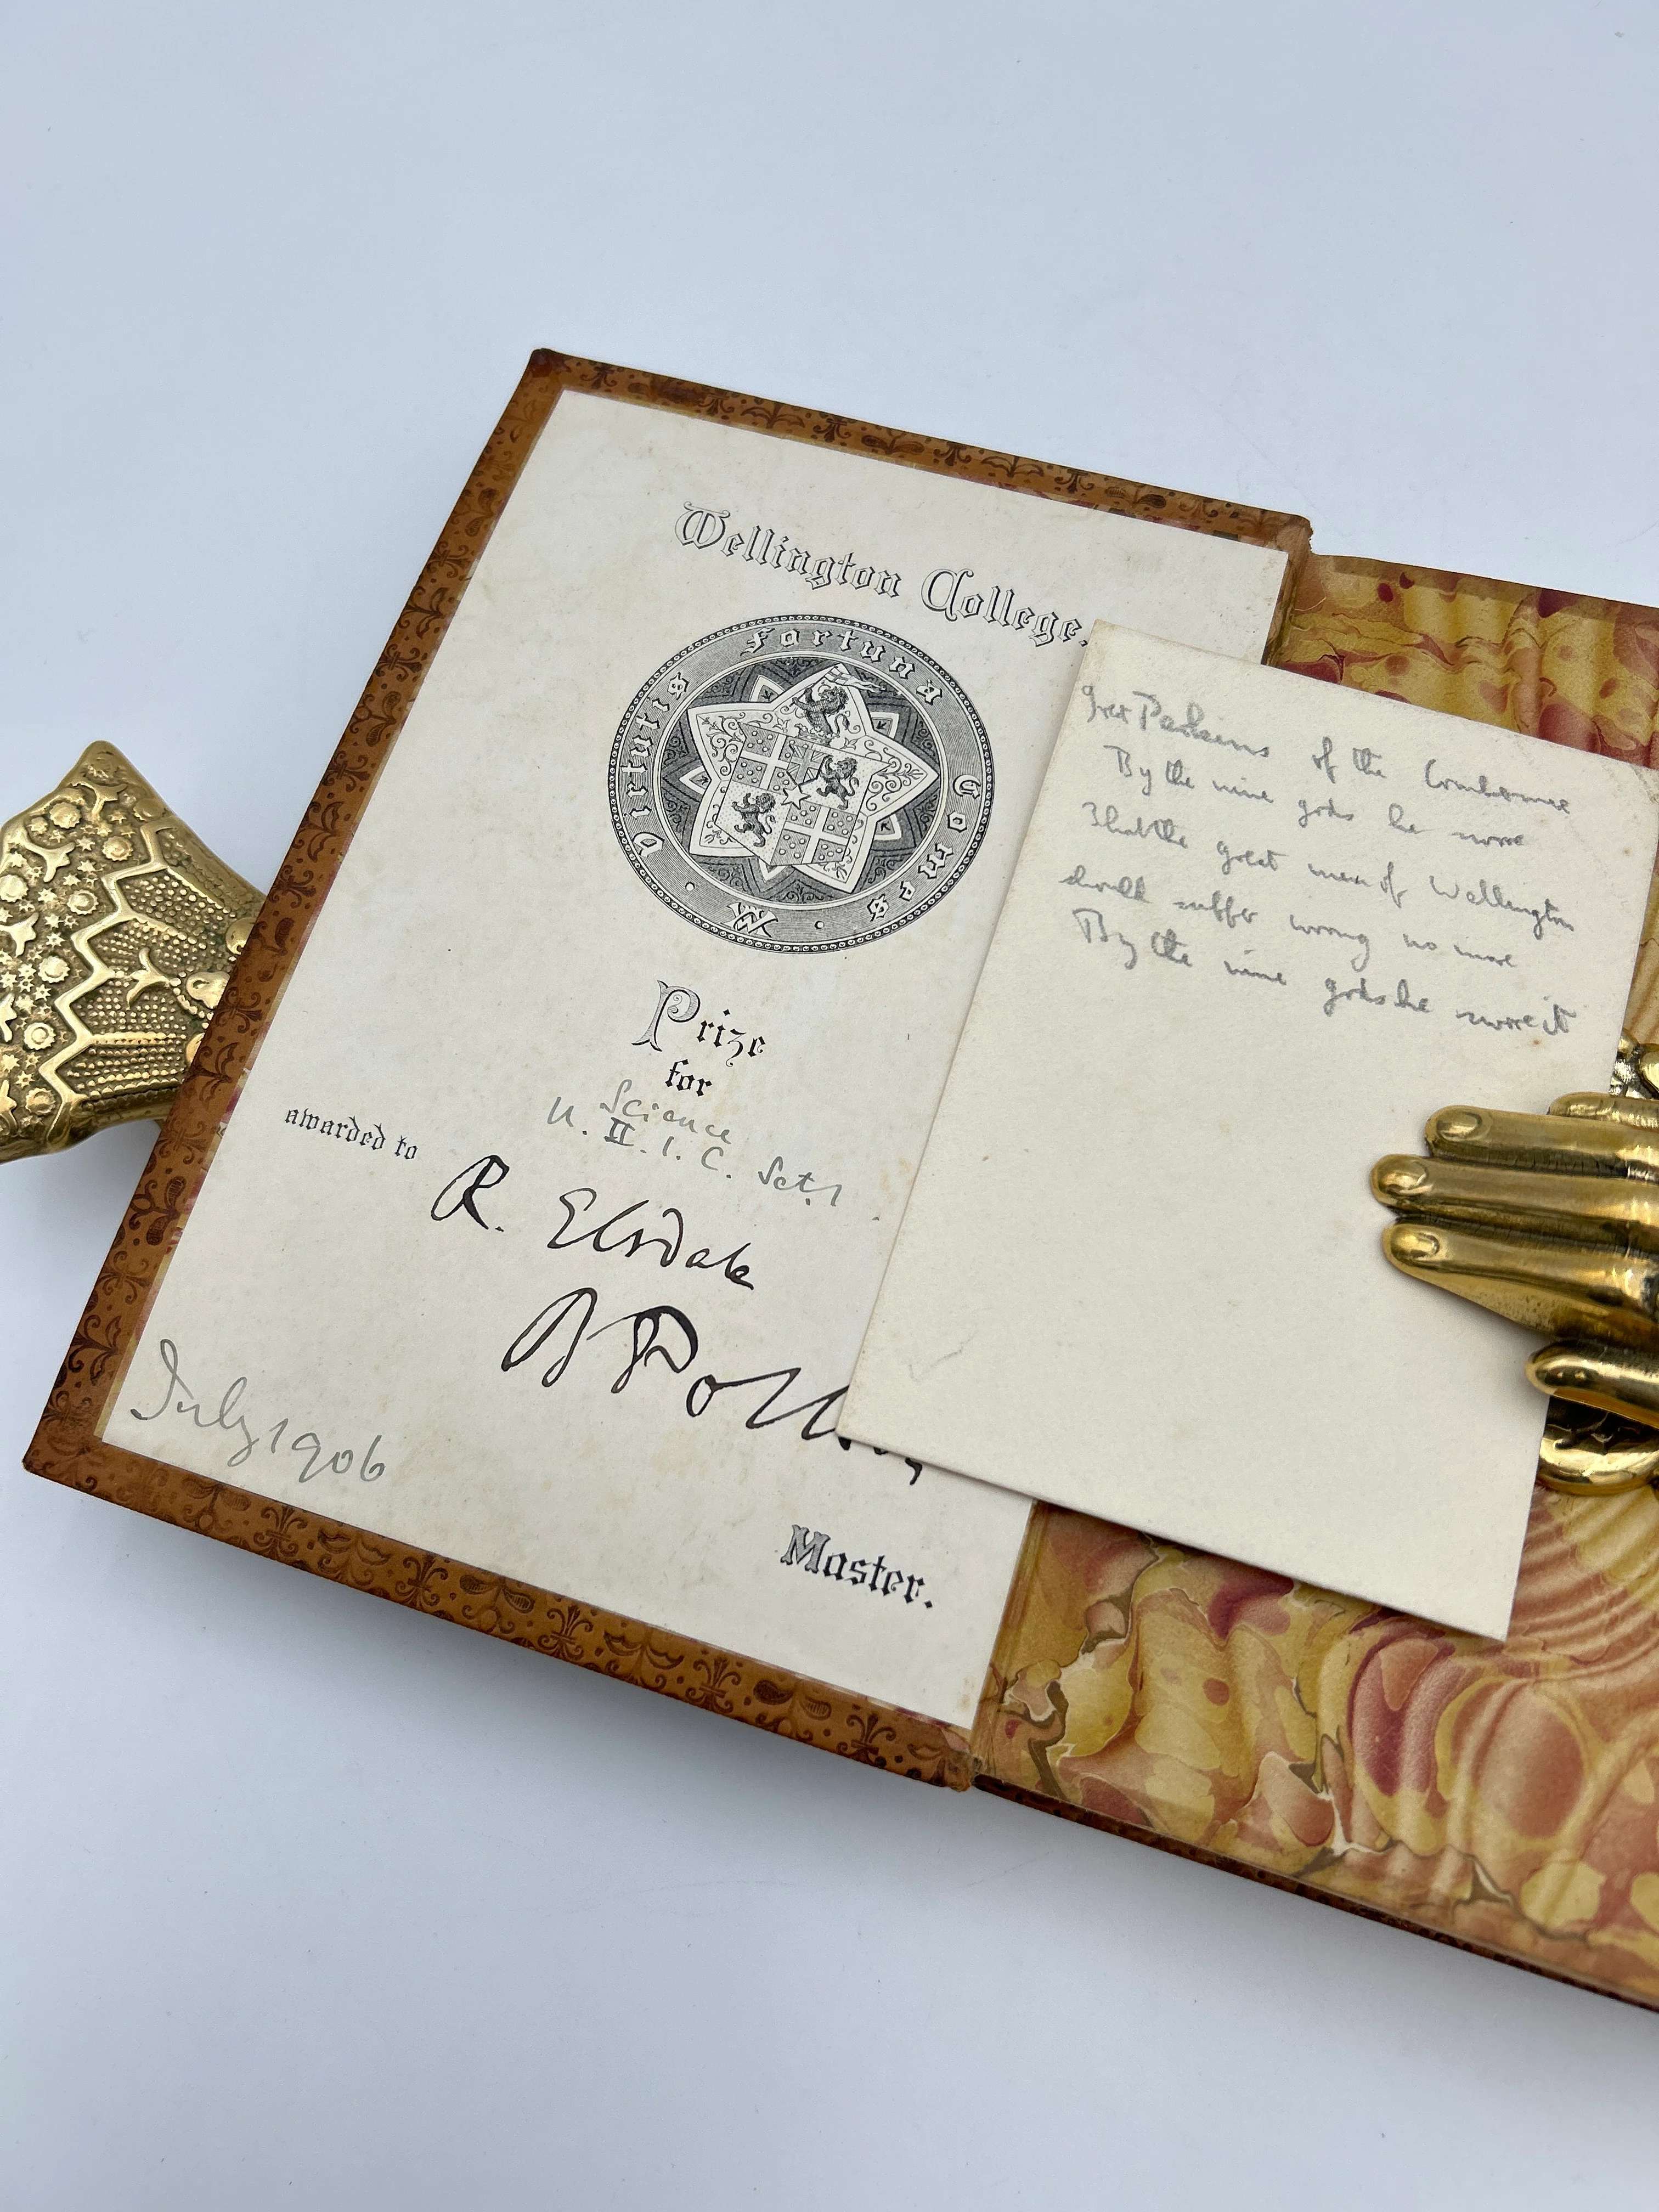 Wellington College.
Virtutis Fortuna Comes
W
Prize
for
Science
U. II. 1. C. Set. 1
awarded to
R. Elsdale
Master.
July 1906
of the
By the nine gods he swore
That the great men of Wellington
should suffer wrong no more
By the nine gods he swore it